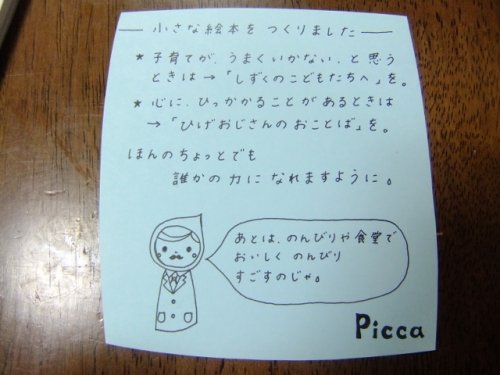 — 小さな絵本を つくりました —
★ 子育てが、うまくいかない、と 思う
ときは → 「しずくのこどもたちへ」を。
★ 心に、ひっかかることが あるときは
→ 「ひげおじさんの おことば」を。
ほんのちょっとでも
誰かの 力に なれますように。
あとは、のんびりや食堂で
おいしく のんびり
すごすのじゃ。
Picca